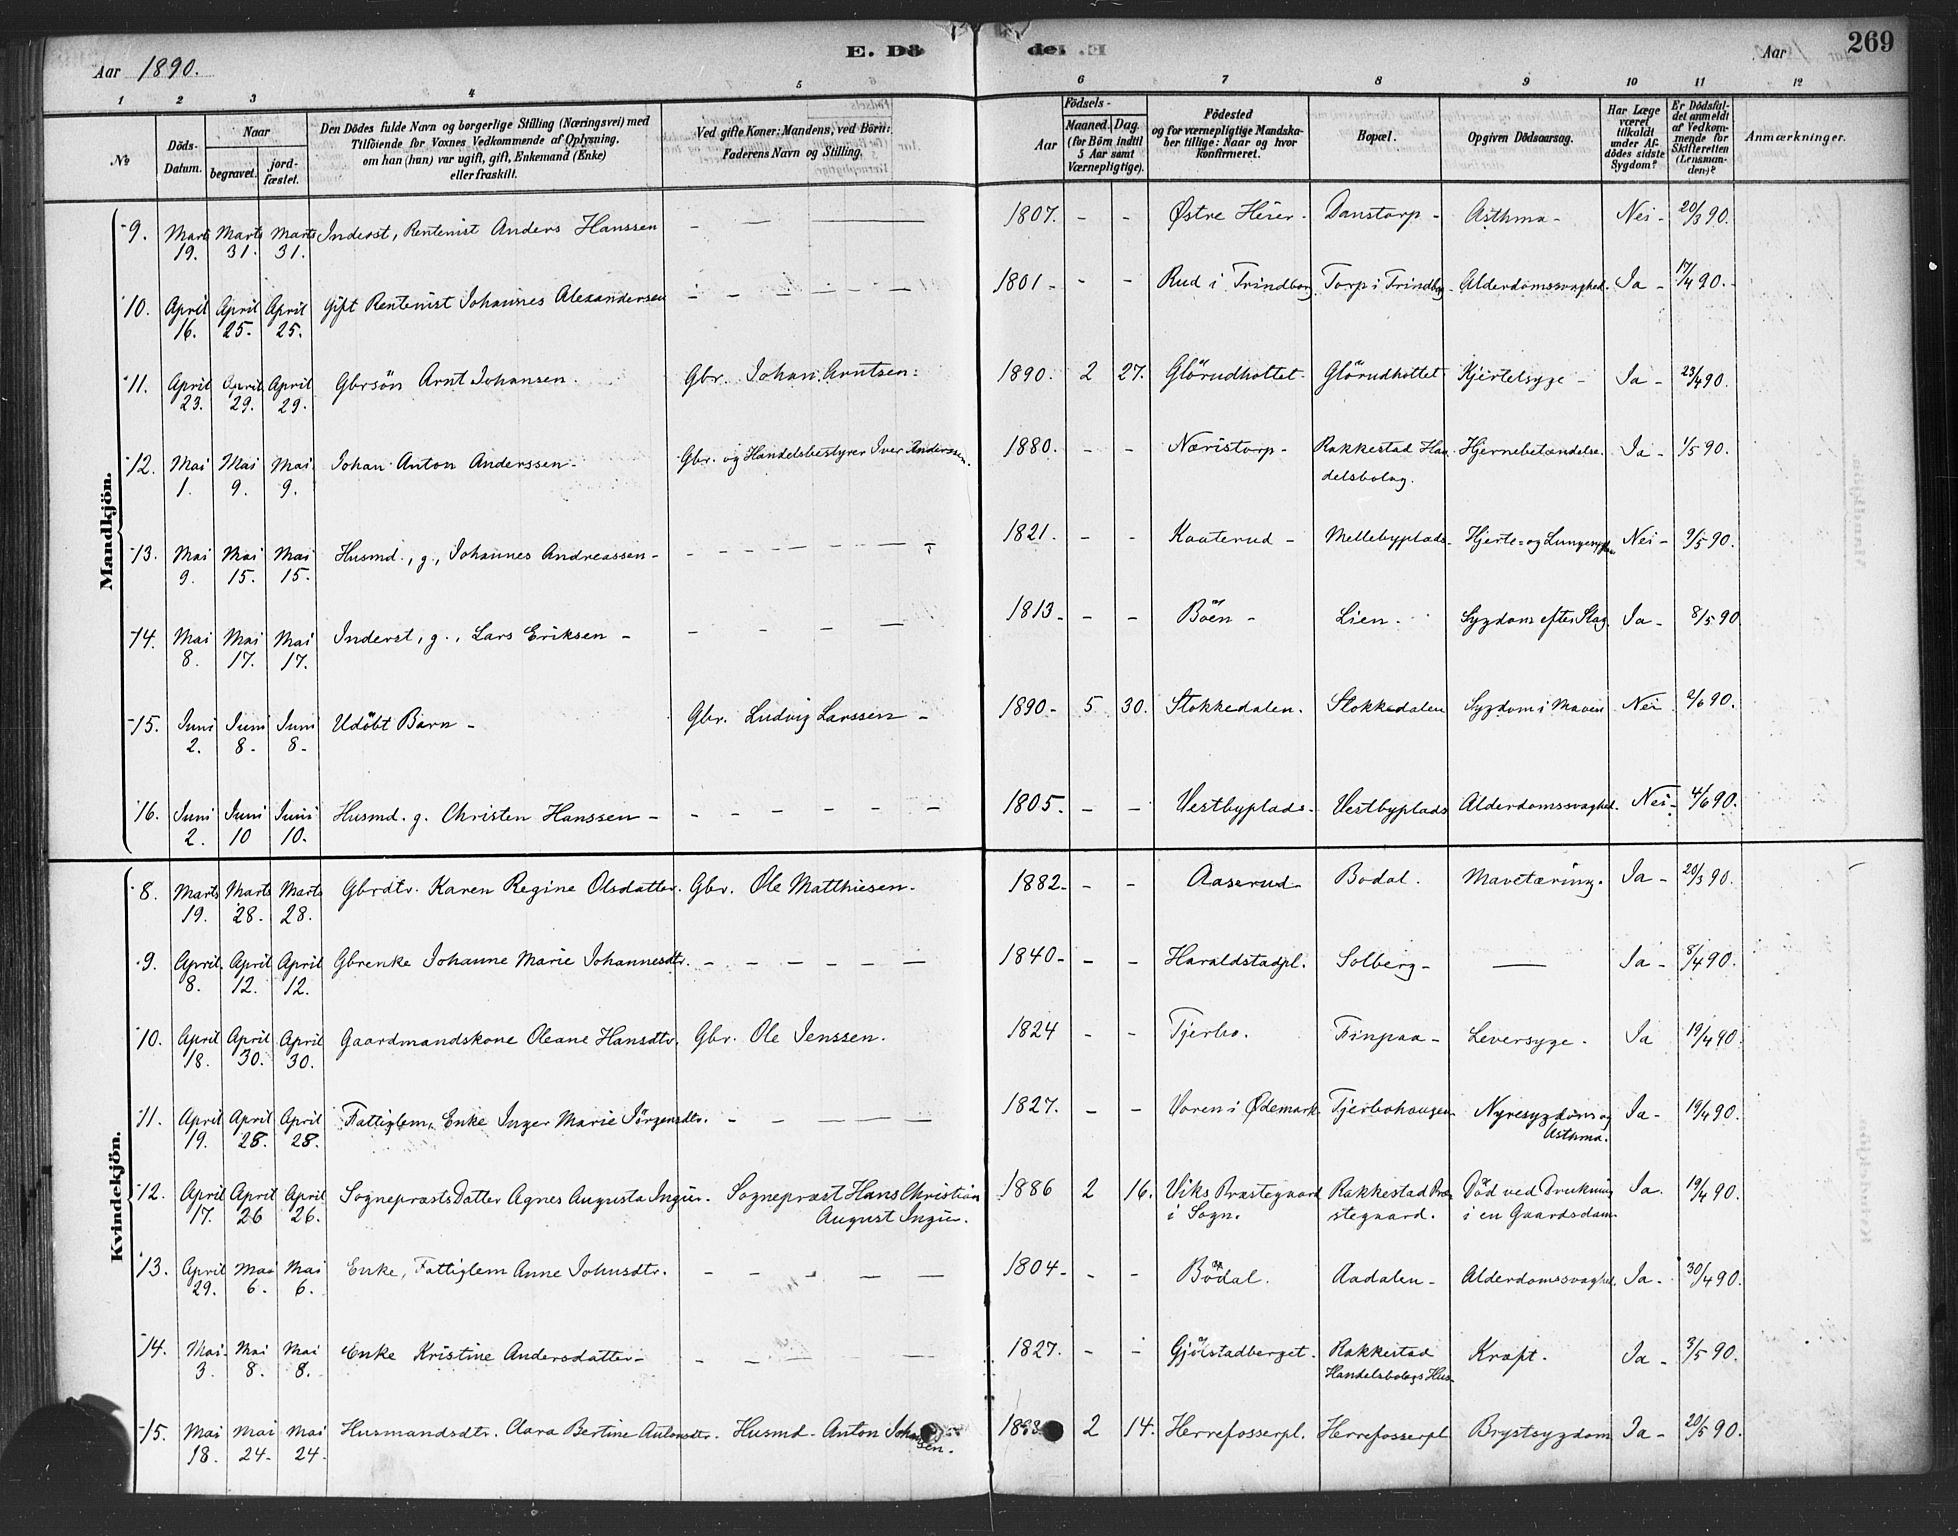 Aar 1890. E. Dö del .E Aar 269
1 2 3 4 5 6 7 8 9 10 11 12
№ Döds-Datum. Naar begravet. jordfæstet. Den Dödes fulde Navn og borgerlige Stilling (Næringsvei) med Tilföiende for Voxnes Vedkommende af Oplysning, om han (hun) var ugift, gift, Enkemand (Enke) eller fraskilt. Ved gifte Koner: Mandens, ved Börn: Faderens Navn og Stilling. Aar Födsels- Maaned. Dag. (for Börn indtil 5 Aar samt Værnepligtige). Födested og for værnepligtige Mandskaber tillige: Naar og hvor konfirmeret. Bopæl. Opgiven Dödsaarsag. Har Læge været tilkaldt under Afdödes sidste Sygdom? Er Dödsfaldet anmeldt af Vedkommende for Skifteretten (Lensmanden)? Anmærkninger.
Mandkjön.
9. Marts 19. Marts 31. Marts 31. Inderst, Rentenist Anders Hanssen - — — 1807. - - Østre Heier - Danstorp - Asthma - Nei - 20/3 90.
10. April 16. April 25. April 25. Gift Rentenist Johannes Alexandersen - - - - - - 1801 - - - Rud i Trindborg Torp i Trindbg. Alderdomssvaghed. Ja - 17/4 90.
11. April 23. April 29. April 29. Gbrsön Arnt Johansen. Gbr. Johan Arntsen: 1890. 2 27. Glörudhottet - Glörudhottet Kjertelsyge - Ja - 23/4 90.
12. Mai 1. Mai 9. Mai 9. Johan Anton Anderssen - Gbr. og Handelsbestyrer Iver Anderssen. 1880. - - Næristorp - Rakkestad Handelsbolag. Hjernebetændelse. Ja - 1/5 90.
13. Mai 9. Mai 15. Mai 15. Husmd., g., Johannes Andreassen - - - - - - - 1821. - - Kaaterud - Mellebyplads - Hjerte- og Lungesygdom Nei - 9/5 90.
14. Mai 8. Mai 17. Mai 17. Inderst, g., Lars Eriksen - - - - - 1813 - - - Böen - Lien - Sygdom efter Slag. Ja - 8/5 90.
15. Juni 2. Juni 8 - Juni 8 - Udöbt Barn - Gbr. Ludvig Larssen - 1890 - 5 30. Stokkedalen. Stokkedalen Sygdom i Maven Nei 2/6 90.
16. Juni 2. Juni 10 Juni 10. Husmd. g. Christen Hanssen - - - - - - - 1805. - - Vestbyplads - Vestbyplads Alderdomssvaghed. Nei - 4/6 90.
Kvindekjön.
8. Marts 19. Marts 28. Marts 28. Gbrdtr. Karen Regine Olsdatter. Gbr. Ole Matthiesen. 1882 - - - Aaserud - Bodal. Mavetæring. Ja - 20/3 90.
9. April 8. April 12. April 12. Gbrenke Johanne Marie Johannesdtr. - - - - - - 1840 - - - Haraldstadpl. Solberg - — Ja - 8/4 90.
10. April 18. April 30. April 30. Gaardmandskone Oleane Hansdtr. Gbr. Ole Jenssen. 1824 - - Tjerbo. Finpaa - Leversyge. Ja 19/4 90.
11. April 19. April 28. April 28. Fattiglem, Enke Inger Marie Jörgensdtr. - - - - - 1827. - - Voren i Ødemark Tjerbohaugen Nyresygdom og Asthma. Ja - 19/4 90.
12. April 17. April 26 April 26. Sogneprests Datter Agnes Augusta Ingier. Sogneprest Hans Christian August Ingier. 1886 2 16. Viks Præstegaard i Sogn. Rakkestad Præstegaard. Död ved Drukning i en Gaardsdam. Ja. 19/4 90.
13. April 29. Mai 6. Mai 6. Enke, Fattiglem Anne Johnsdtr. - - - - - 1804 - - - Bödal. Aadalen - Alderdomssvaghed. Ja - 30/4 90.
14. Mai 3. Mai 8. Mai 8. Enke Kristine Andersdatter - - - - - 1827. - - Gjölstadberget. Rakkestad Handelsbolags Hus - Kræft. Ja - 3/5 90.
15. Mai 18. Mai 24. Mai 24. Husmandsdtr. Clara Bertine Antonsdtr. Husmd. Anton Johansen. 2 14. Herrefosserpl. Herrefosserpl Brystsygdom Ja - 20/5 90.